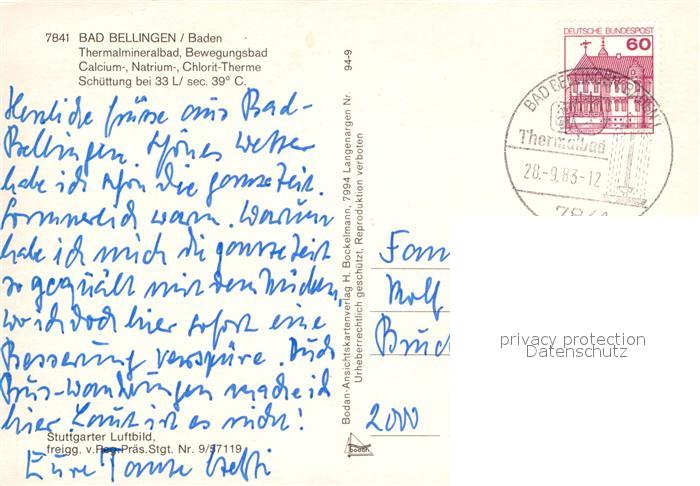 7841 BAD BELLINGEN / Baden
Thermalmineralbad, Bewegungsbad
Calcium-, Natrium-, Chlorit-Therme
Schüttung bei 33 L/ sec. 39° C.
Herzliche Grüße aus Bad-
Bellingen. Schönes Wetter
habe ich schon die ganze Zeit.
Sommerlich warm. Warum
habe ich mich die ganze Zeit
so gequält mit dem Rücken,
wo ich doch hier sofort eine
Besserung verspüre. Auch
Wanderungen mache ich
hier. Laut ist es nicht!
Stuttgarter Luftbild,
freigg. v. Reg.Präs.Stgt. Nr. 9/57119
Eure Tante
94-9
Bodan-Ansichtskartenverlag H. Bockelmann, 7994 Langenargen Nr.
Urheberrechtlich geschützt, Reproduktion verboten
bodan
DEUTSCHE BUNDESPOST
60
BAD BELLINGEN
Thermalbad
28.-9.83-12
7841
Fam
Rolf
Bruc
2000
privacy protection
Datenschutz